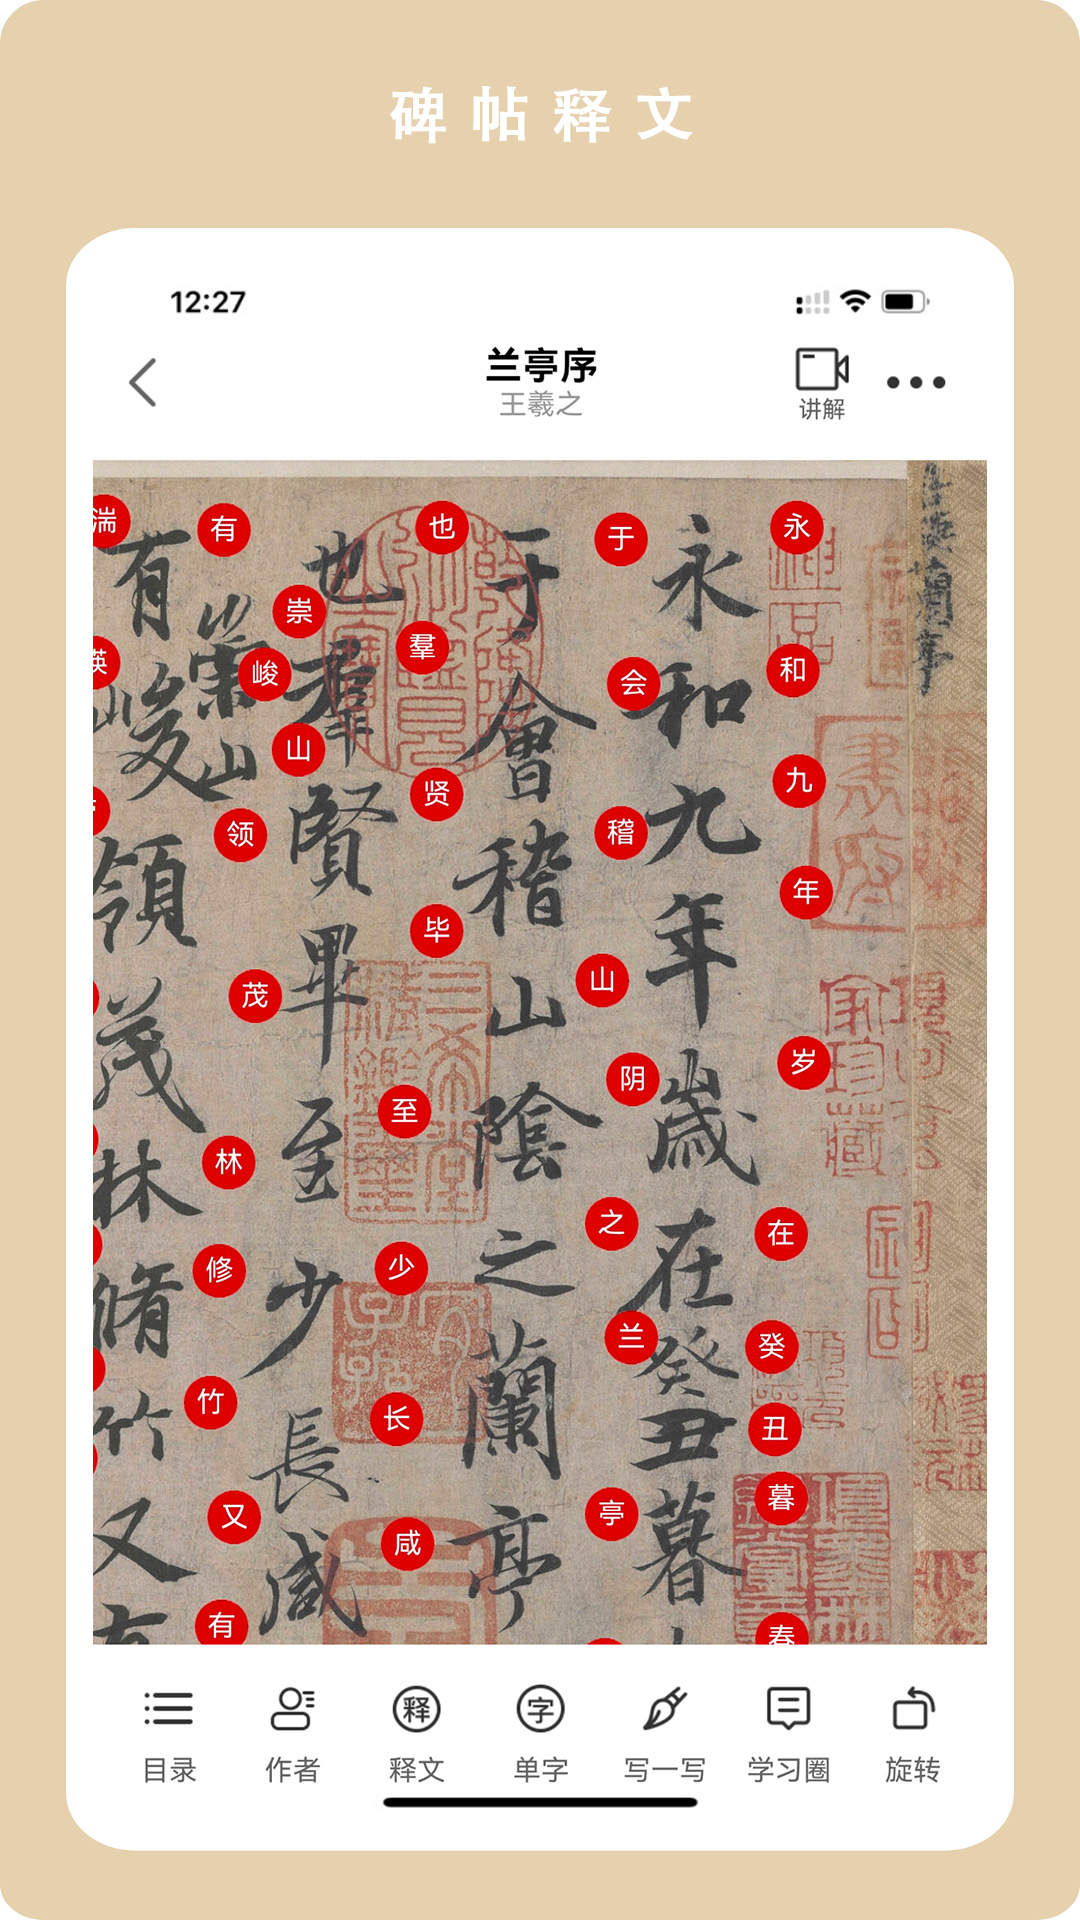 碑帖释文
12:27
兰亭序
王羲之
讲解
永和九年歲在癸丑暮
永 和 九 年 岁 在 癸 丑 暮 春
于會稽山陰之蘭亭
于 会 稽 山 阴 之 兰 亭
也羣賢畢至少長咸
也 羣 贤 毕 至 少 长 咸
崇山
崇 山
有峻領茂林脩竹又有
有 峻 领 茂 林 修 竹 又 有
湍
三希堂精鑑璽
目录
作者
释
释文
字
单字
写一写
学习圈
旋转